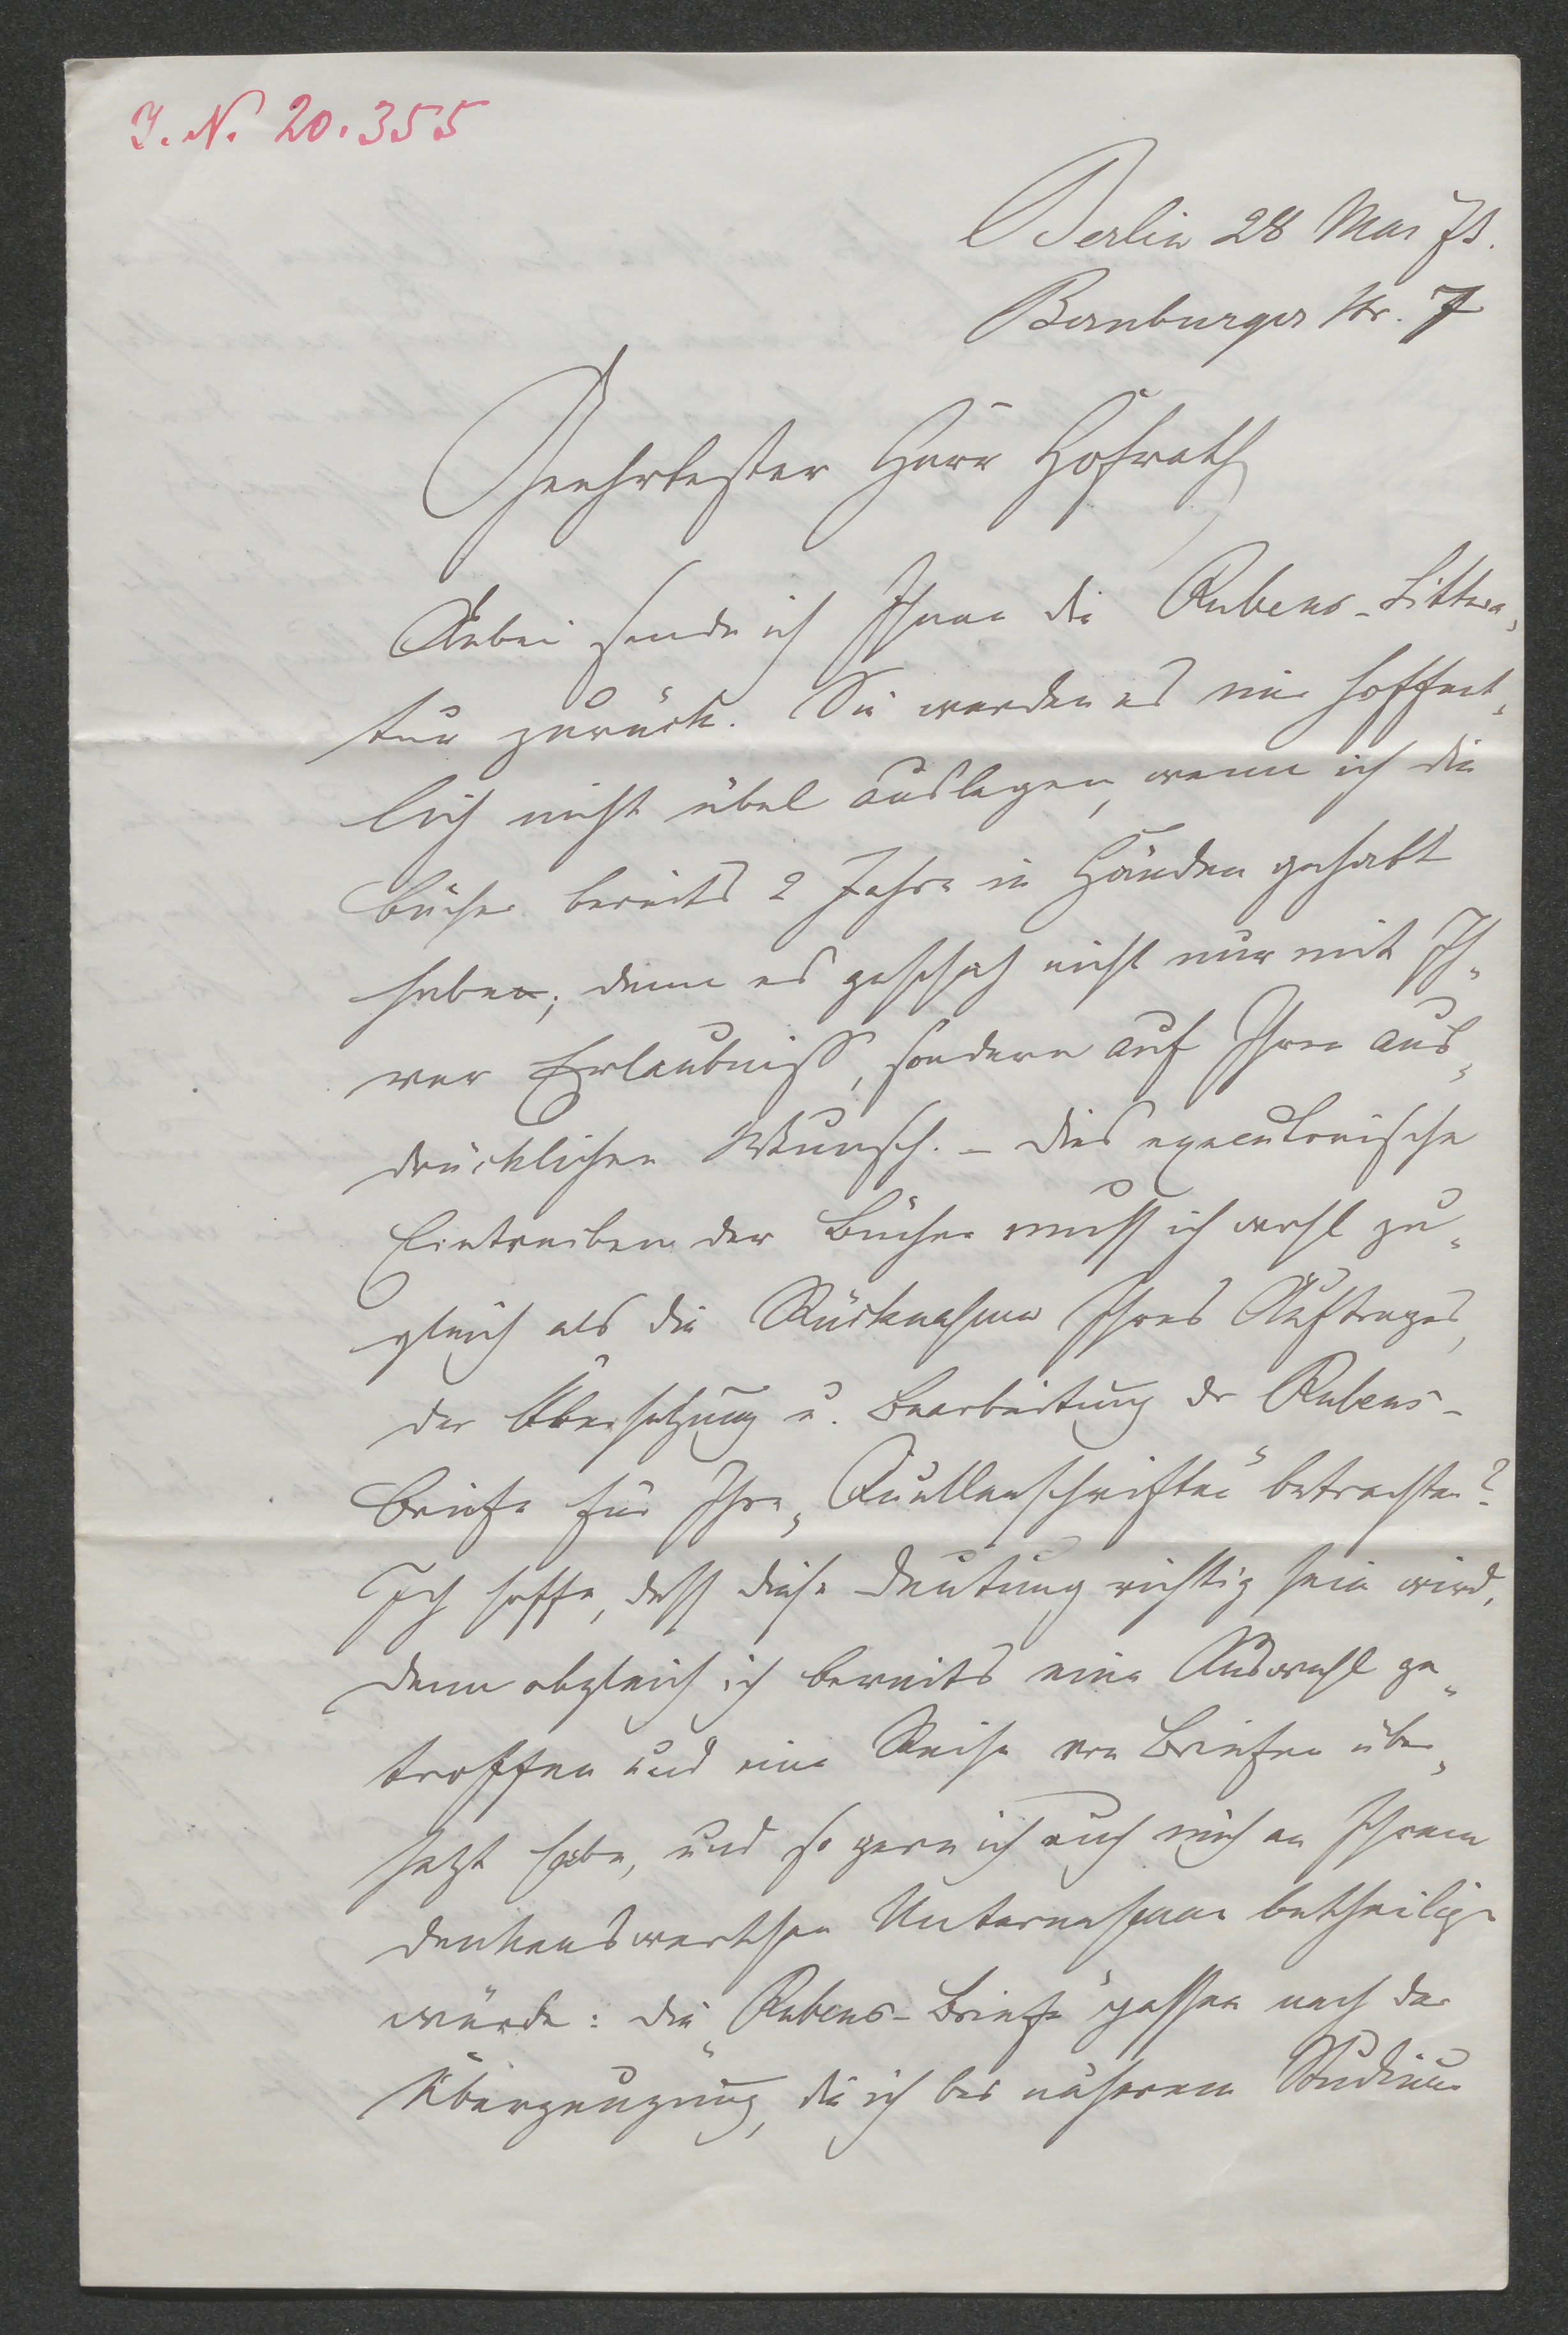 I. N. 20.355
Berlin 28 Mai 78.
Bernburger Str. 7
Geehrtester Herr Hofrath
Anbei sende ich Ihnen die Rubens-Littera-
tur zurück. Sie werden es mir hoffent-
lich nicht übel auslegen, wenn ich die
Bücher bereits 2 Jahre in Händen gehabt
habe; denn es geschah nicht nur mit Ih-
rer Erlaubniss, sondern auf Ihren aus-
drücklichen Wunsch. – Dies executorische
Eintreiben der Bücher muss ich wohl zu-
gleich als die Rücknahme Ihres Auftrages,
der Übersetzung u. Bearbeitung der Rubens-
Briefe für Ihre „Quellenschriften" betrachten?
Ich hoffe, dass diese Deutung richtig sein wird,
denn obgleich ich bereits eine Auswahl ge-
troffen und eine Reihe von Briefen über-
setzt habe, und so gern ich auch mich an Ihrem
dankenswerthen Unternehmen betheiligen
würde: die „Rubens-Briefe" passen nach der
Überzeugung, die ich bei näherem Studium